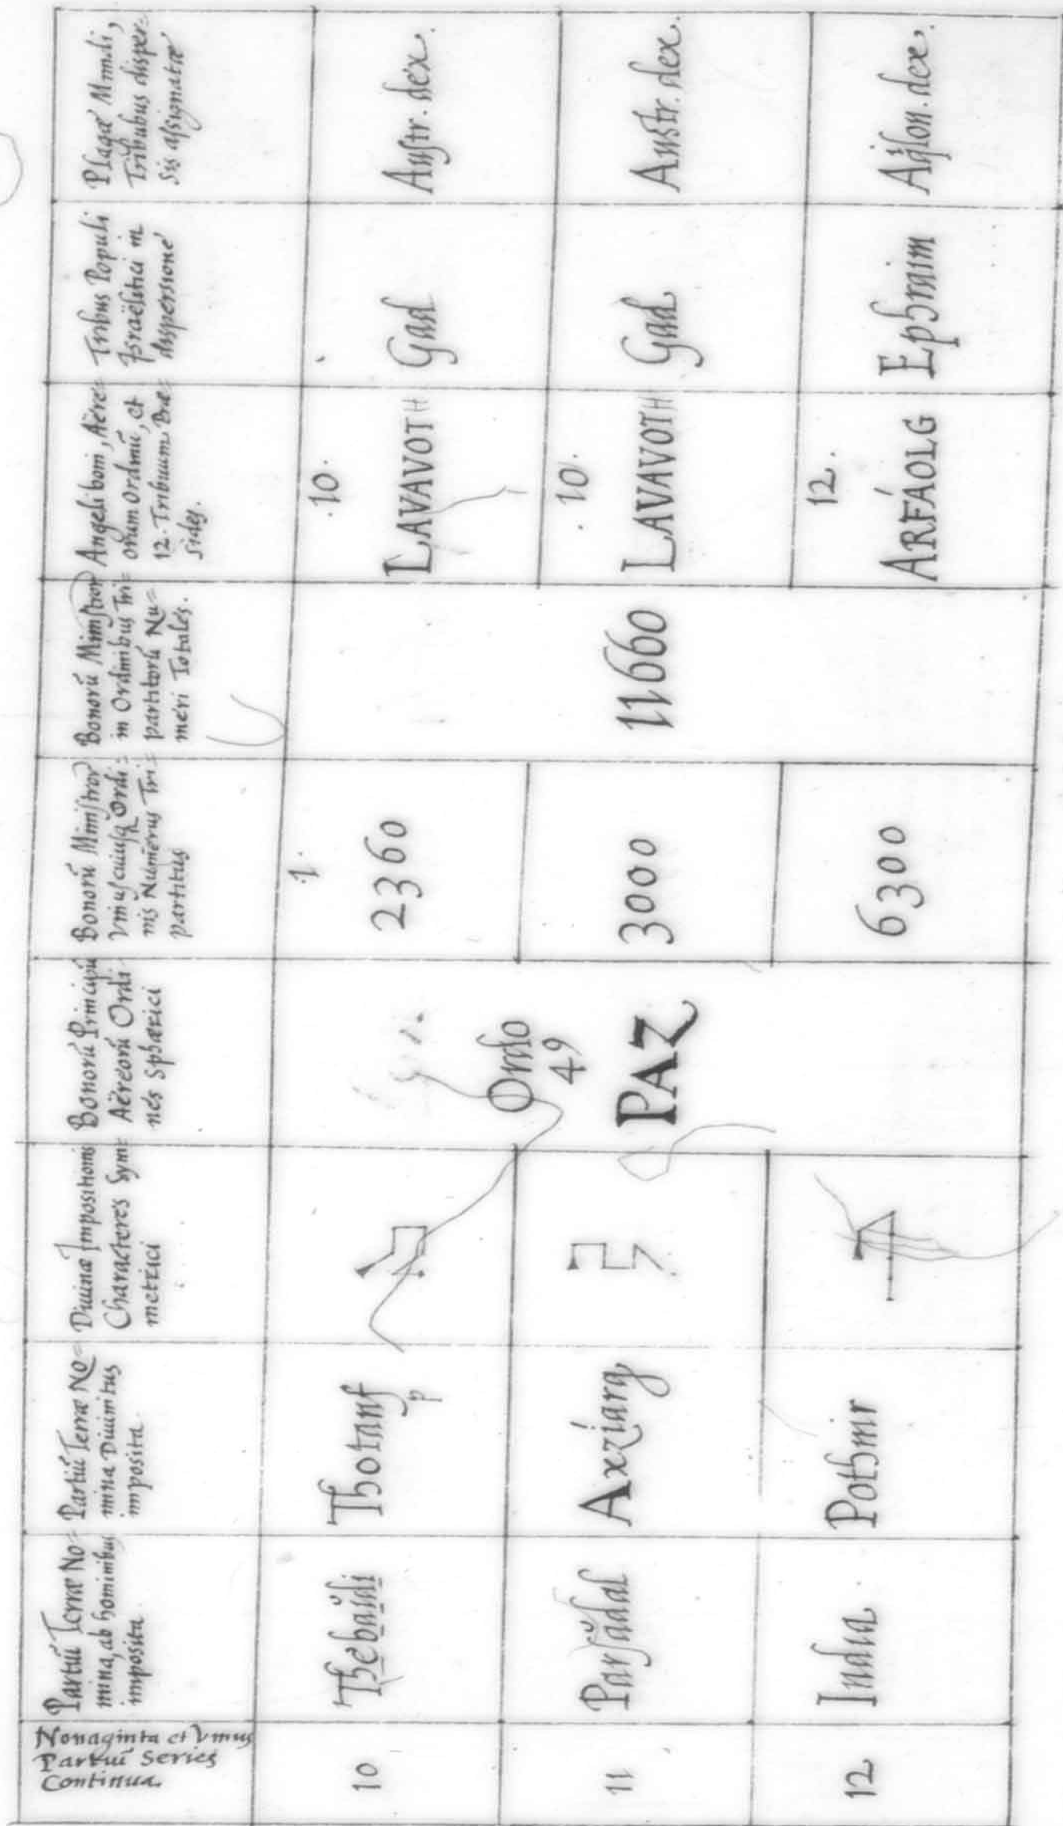 Nonaginta et Vnius
Partiū Series
Continua.
Partiū Terræ No=
mina, ab hominibus
imposita.
Partiū Terræ No=
mina Diuinitus
imposita.
Diuinæ Impositionis
Characteres Sym=
metrici
Bonorū Principū
Aëreorū Ordi=
nes Sphærici
Bonorū Ministror
Vniuscuiusq Ordi=
nis Numerus Tri=
partitus
Bonorū Ministror
in Ordinibus Tri=
partitorū Nu=
meri Totales.
Angeli boni, Aëre=
orum Ordinū, et
12. Tribuum Præ=
sides.
Tribus Populi
Israëlitici in
dispersione
Plagæ Mundi,
Tribubus disper=
sis assignatæ
10
Thebaidi
Thotanf
p
Ordo
49
PAZ
1.
2360
11660
.10.
LAVAVOTH
Gad
Austr. dex.
11
Parsadal
Axziarg
3000
.10.
LAVAVOTH
Gad
Austr. dex.
12
India
Pothnir
6300
12.
ARFÁOLG
Ephraim
Aqlon. dex.